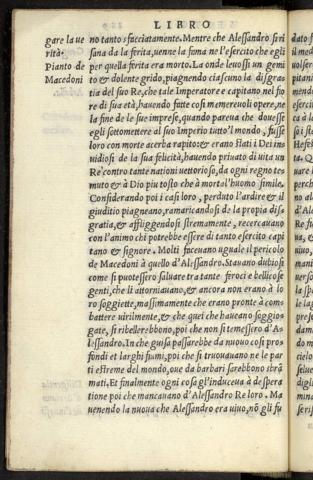 LIBRO
gare la ue no tanto sfacciatamente. Mentre che Alessandro si ri
rità. sana da la ferita, uenne la fama ne l'esercito che egli
Pianto de per quella ferita era morto. La onde leuossi un gemi
Macedoni to & dolente grido, piagnendo ciascuno la disgra
tia del suo Re, che tale Imperatore e capitano nel fio
re di sua età, hauendo fatte cosi memereuoli opere, ne
la fine de le sue imprese, quando pareua che douesse
egli sottomettere al suo Imperio tutto'l mondo, fusse
loro con morte acerba rapito: & erano stati i Dei in
uidiosi de la sua felicità, hauendo priuato di uita un
Re contro tante nationi uettorioso, da ogni regno te
muto & à Dio piu tosto che à mortal'huomo simile.
Considerando poi i casi loro, perduto l'ardire & il
giuditio piagneano, ramaricandosi de la propia dis
gratia, & affliggendosi stremamente, recercauano
con l'animo chi potrebbe essere di tanto esercito capi
tano & signore. Molti faceuano uguale il pericolo
de Macedoni à quello d'Alessandro. Stauano dubiosi
come si puotessero saluare tra tante feroci e bellicose
genti, che li attorniauano, & ancora non erano à lo
ro soggiette, massimamente che erano pronte à com
battere uirilmente, & che quei che haueano soggio
gate, si ribellerebbono, poi che non si temessero d'A=
lessandro. In che guisa passarebbe da nuouo cosi pro=
fondi et larghi fumi, poi che si truouauano ne le par
ti estreme del mondo, oue da barbari sarebbono istrà
mati. Et finalmente ogni cosa gl'induceua à despera
tione poi che mancauano d'Alessandro Re loro. Ma
uenendo la nuoua che Alessandro era uiuo, nõ gli fu